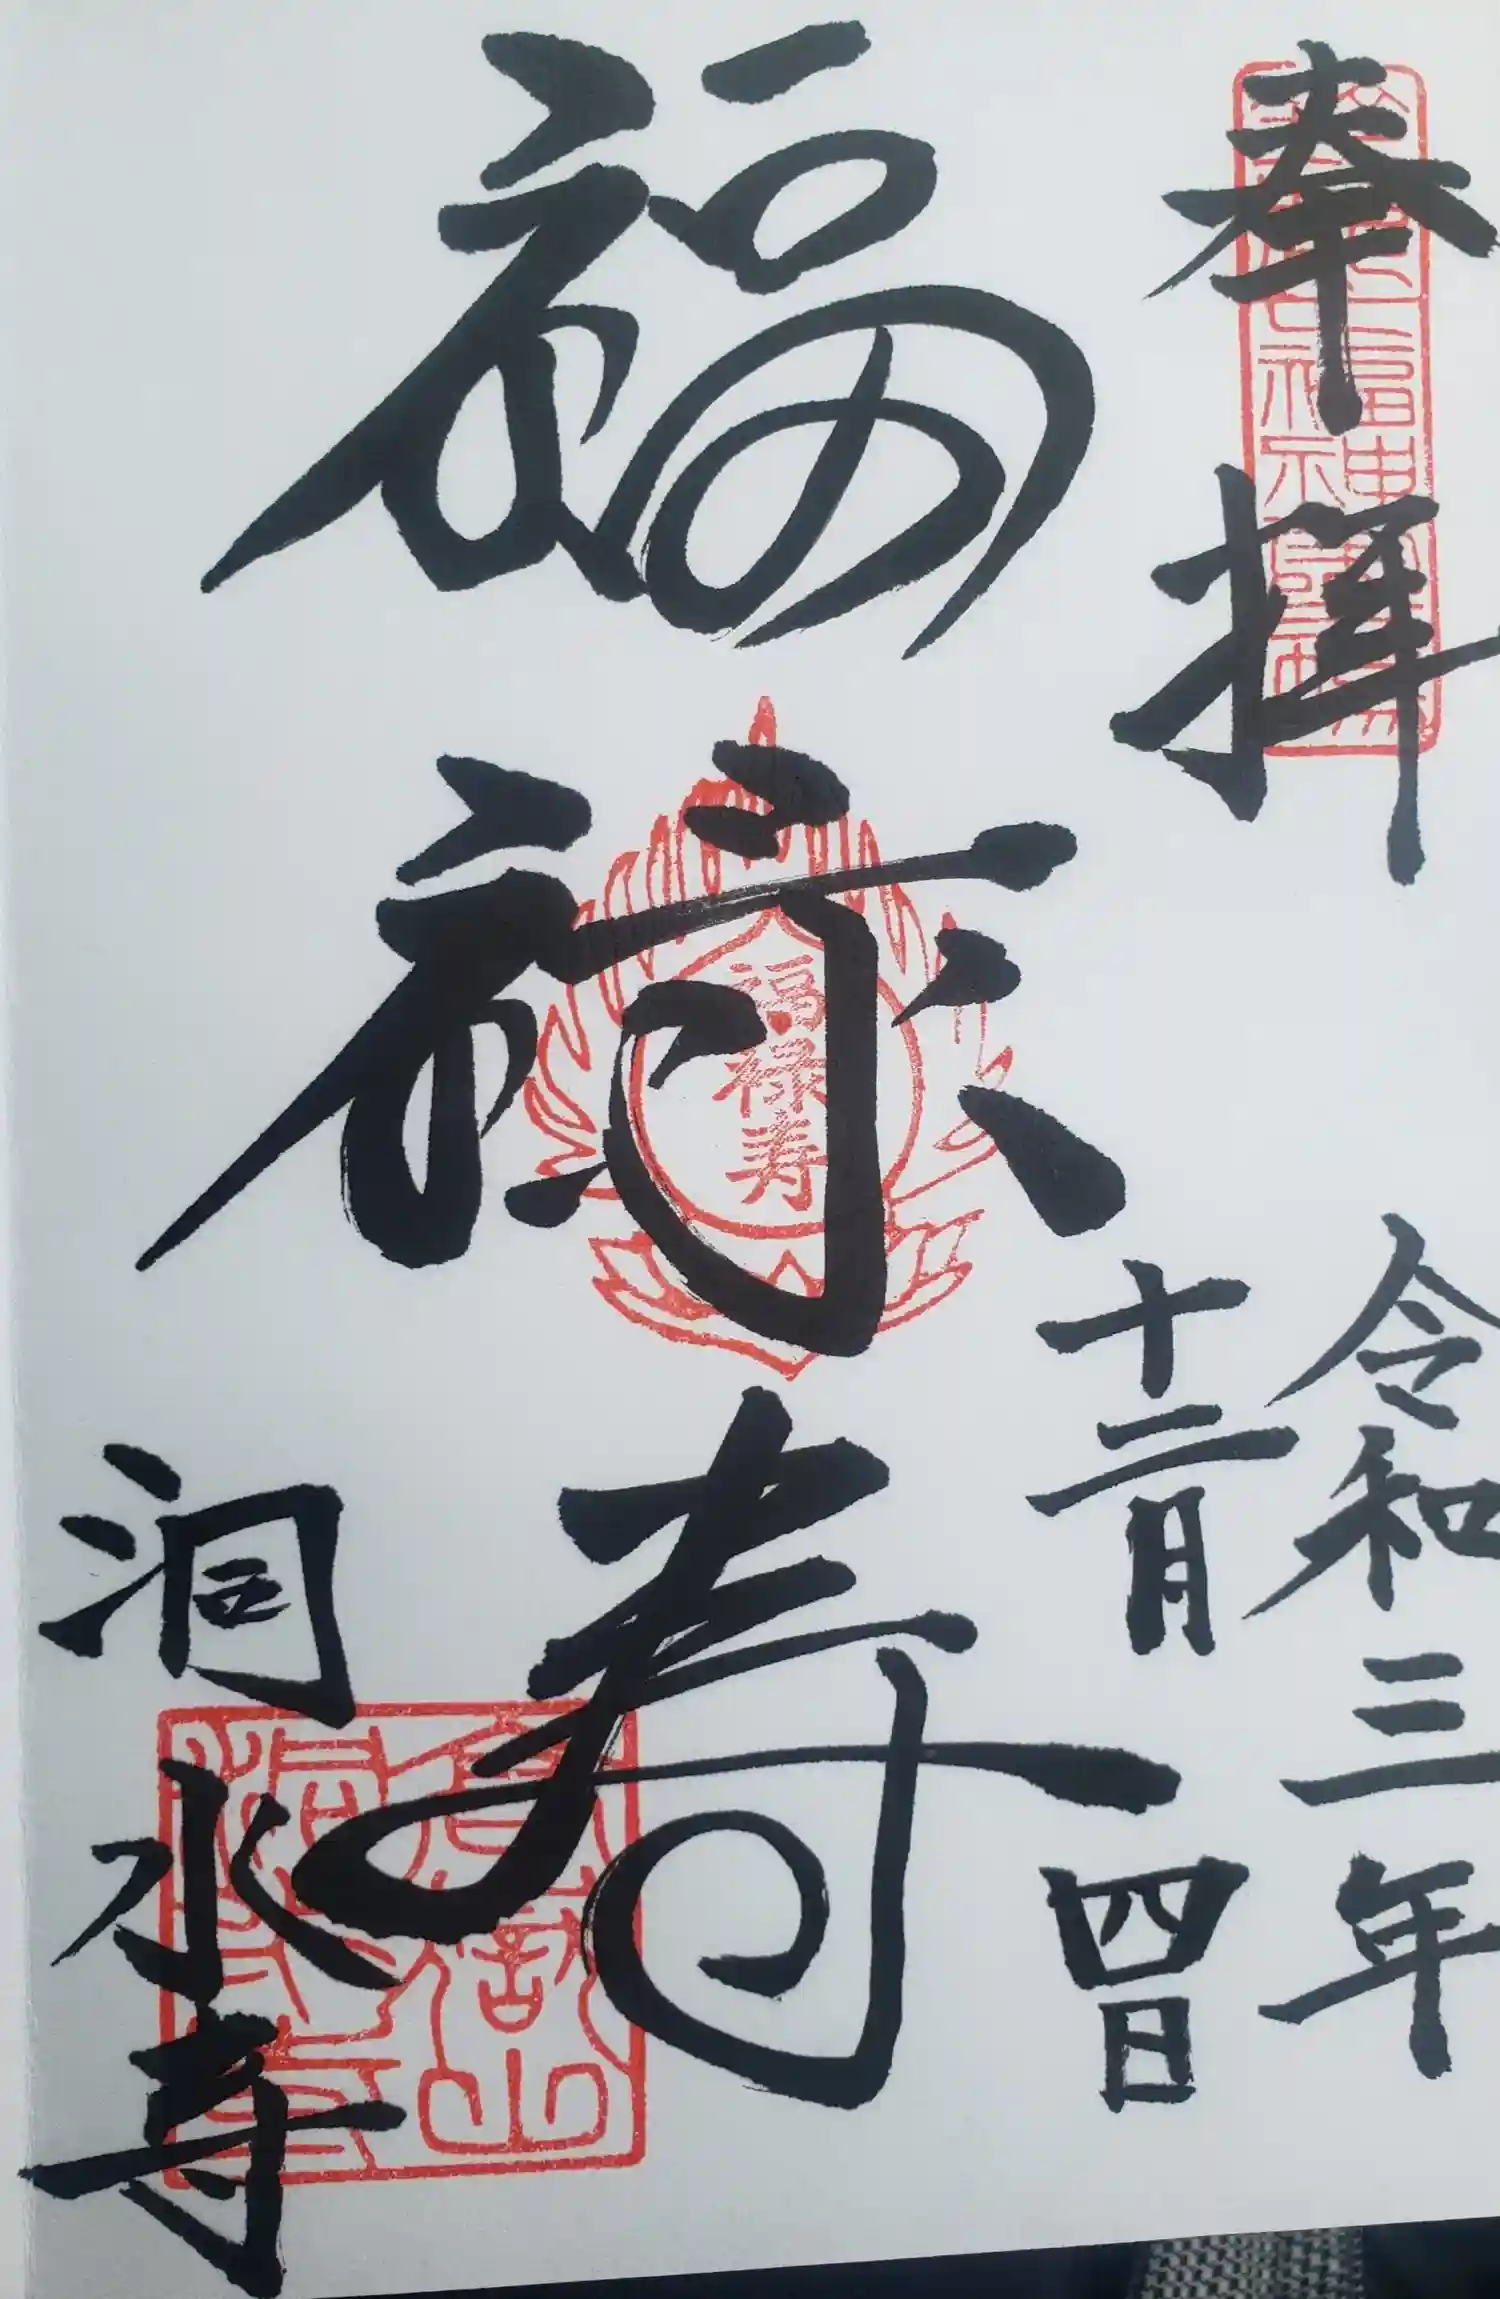 奉拝
令和三年
十二月四日
福禄寿
福禄寿
洞水寺